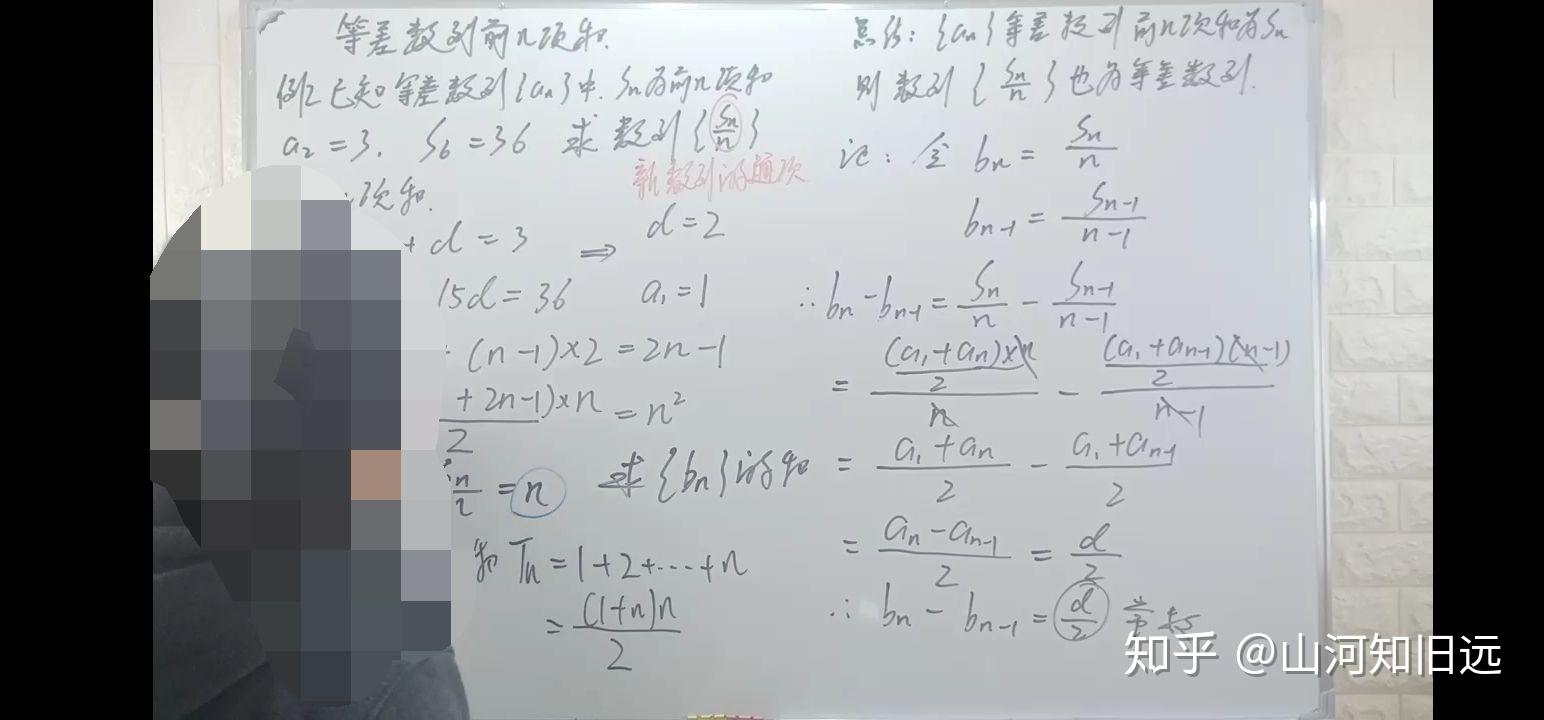 等差数列前n项和.
例2 已知等差数列{an}中. Sn为前n项和
a₂=3. S₆=36 求数列{Sn/n}
新数列的通项
项和.
+d=3 ⇒ d=2
15d=36 a₁=1
(n-1)×2=2n-1
+2n-1)×n/2 = n²
Sn/n = n 求{bn}的和
和 Tn=1+2+…+n
=(1+n)n/2
总结: {an}等差数列前n项和为Sn
则数列{Sn/n}也为等差数列.
记: 令 bn = Sn/n
bn-1 = Sn-1/n-1
∴bn-bn-1 = Sn/n - Sn-1/n-1
= (a₁+an)×n/2/n - (a₁+an-1)(n-1)/2/n-1
= a₁+an/2 - a₁+an-1/2
= an-an-1/2 = d/2
∴ bn - bn-1 = d/2 常数
知乎 @山河知旧远